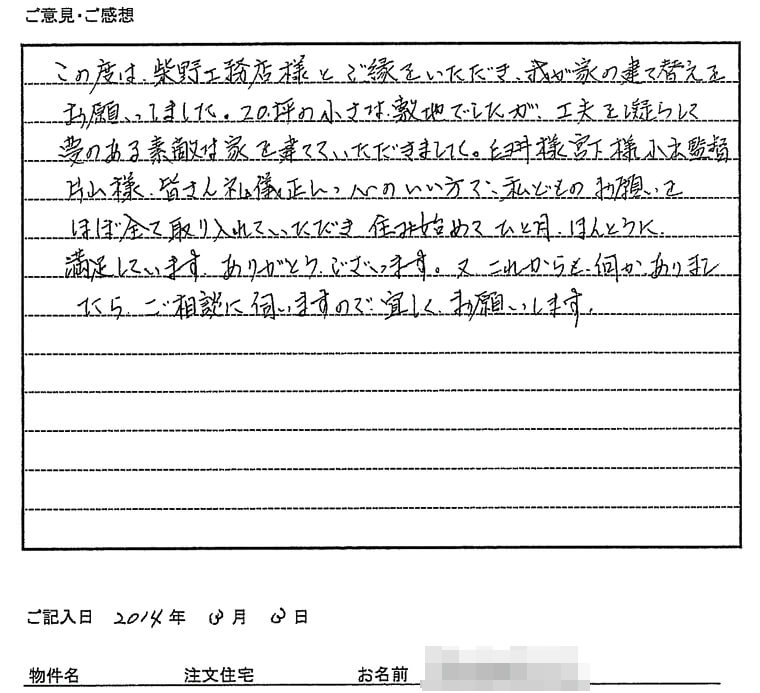 ご意見・ご感想
この度は、柴野工務店様とご縁をいただき、我が家の建て替えを
お願いしました。20坪の小さな敷地でしたが、工夫を凝らして
夢のある素敵な家を建てていただきまして。臼井様宮下様小玉監督
片山様、皆さん礼儀正しく心のいい方で、私どものお願いを
ほぼ全て取り入れていただき 住み始めてひと月、ほんとうに
満足しています。ありがとうございます。又これからも何かありまし
たら、ご相談に伺いますので、宜しくお願いします。
ご記入日 2014年 3月 3日
物件名 注文住宅 お名前